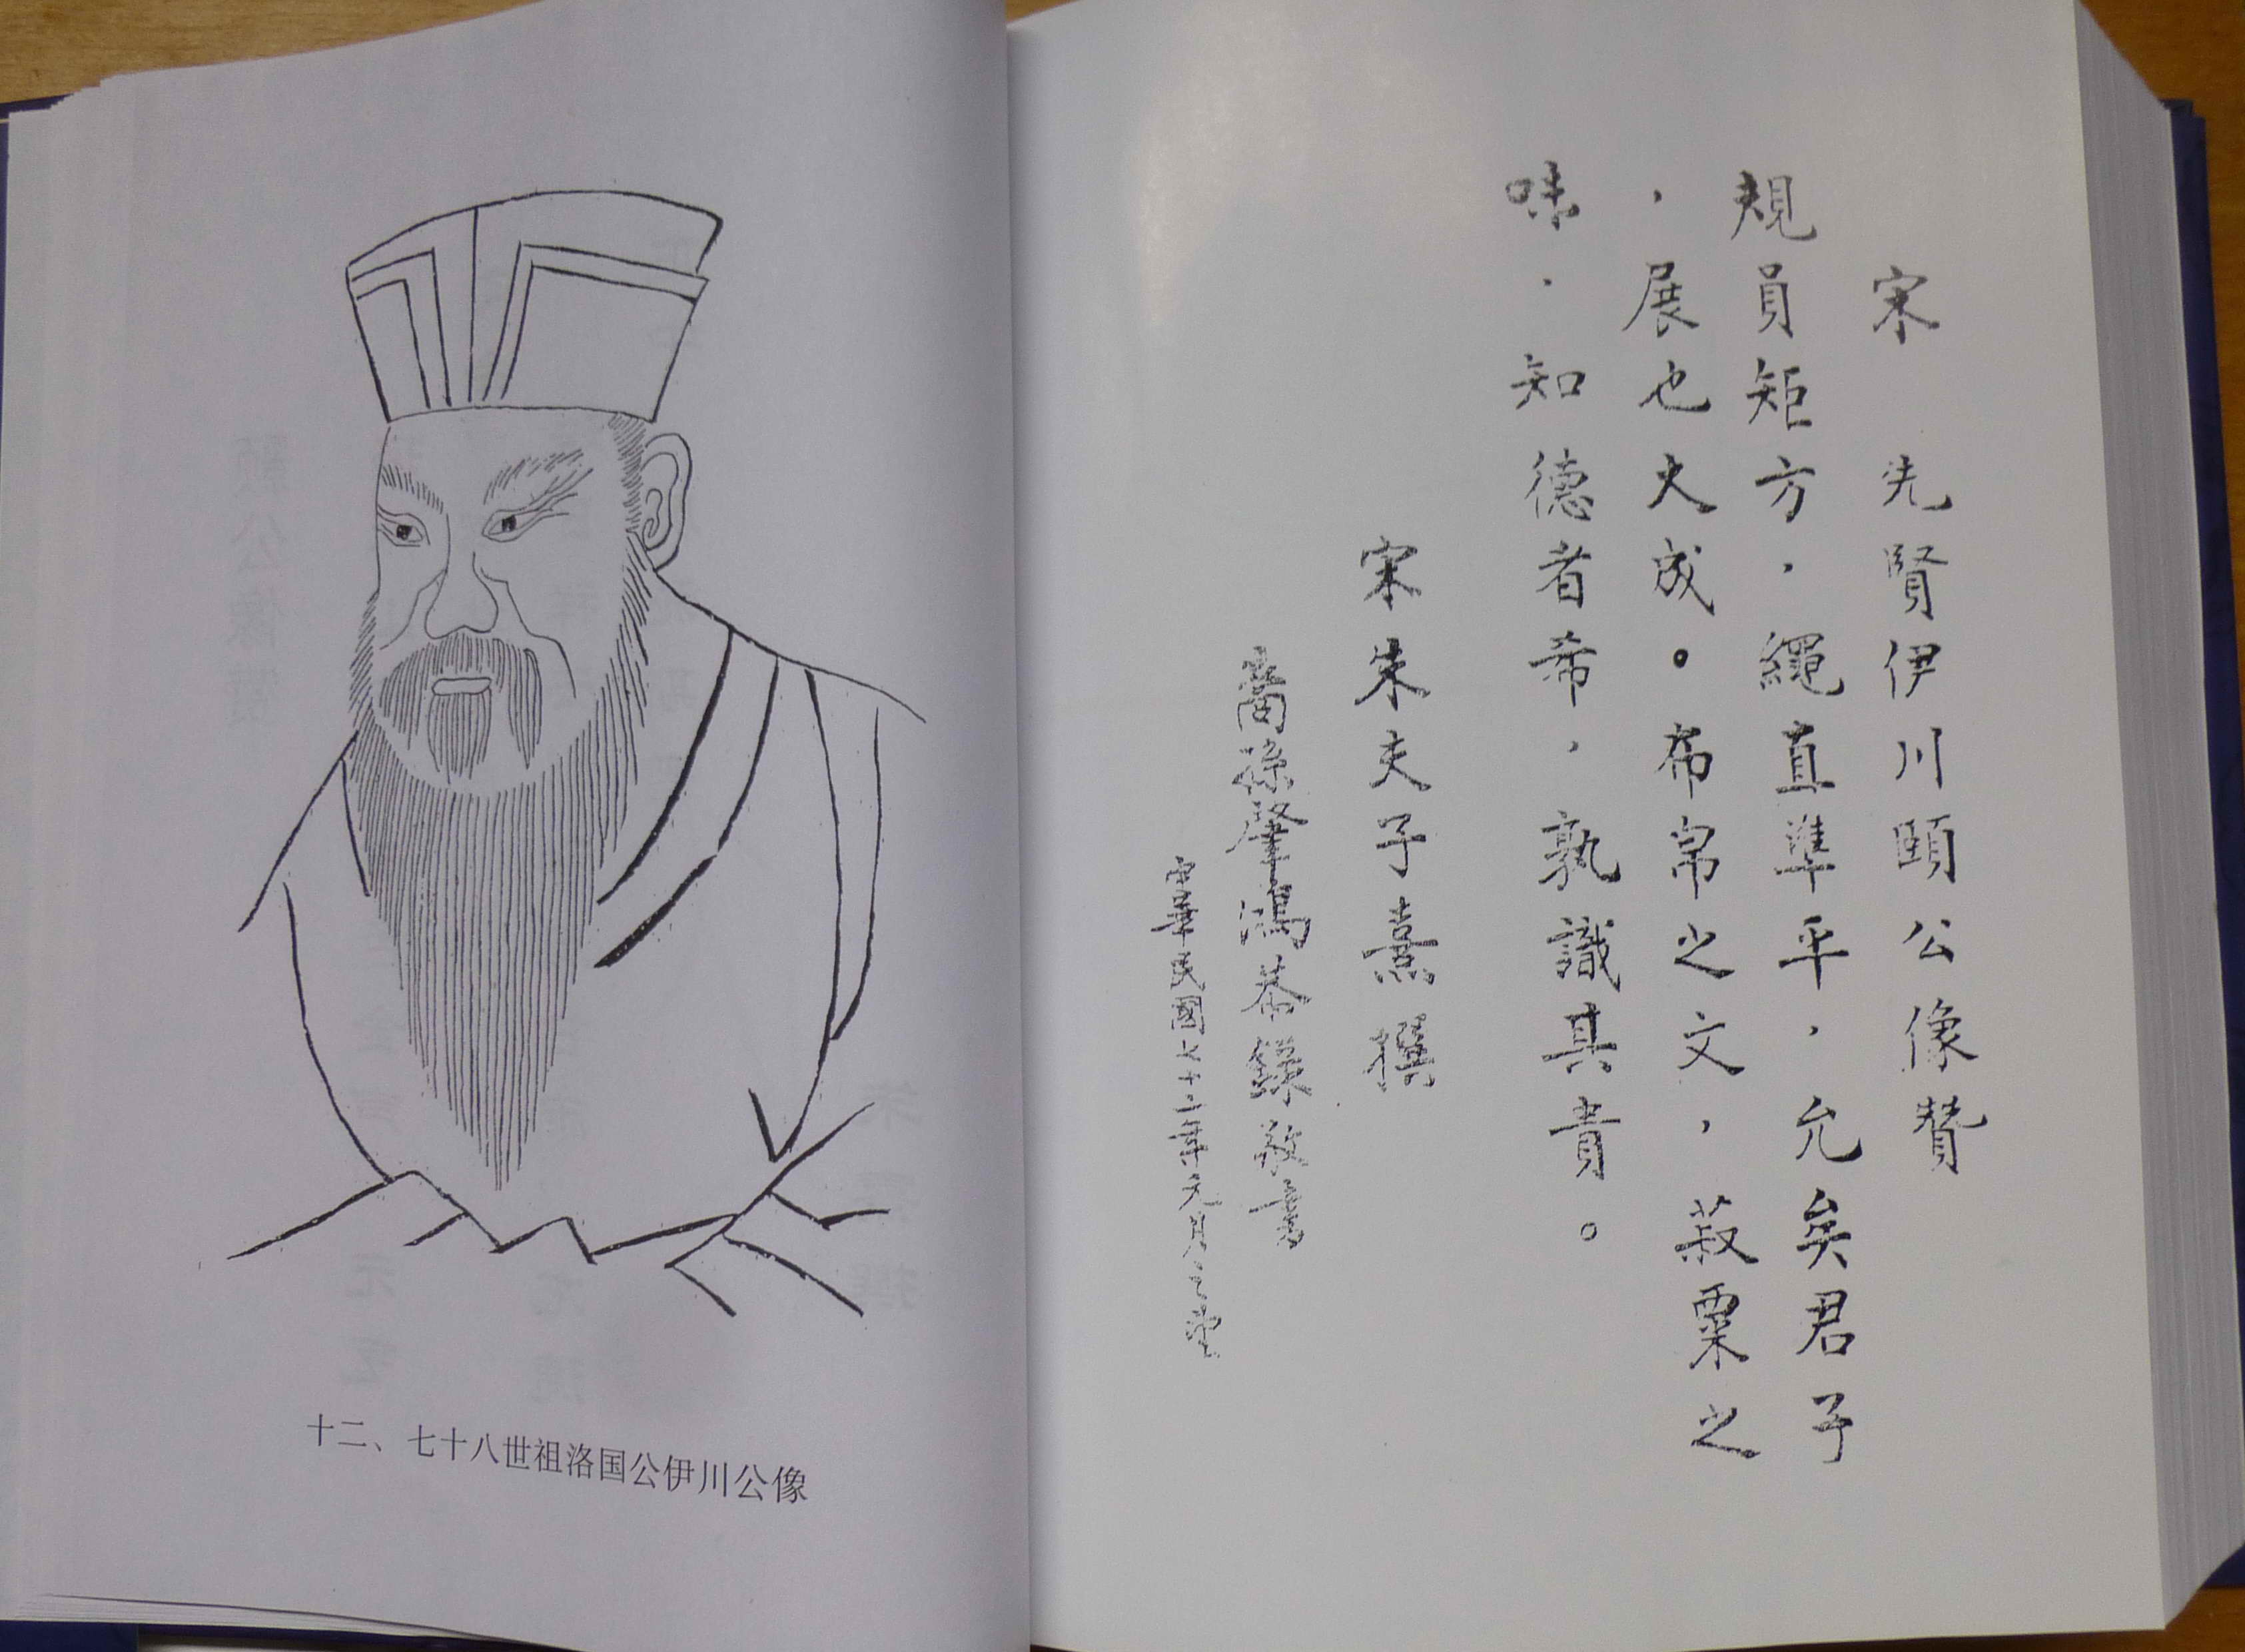 宋 先賢伊川頤公像贊
規員矩方，繩直準平，允矣君子
，展也大成。布帛之文，菽粟之
味，知德者希，孰識其貴。
宋朱夫子熹撰
裔孫肇鴻恭錄敬書
中華民國七十二年元月之望
十二、七十八世祖洛国公伊川公像